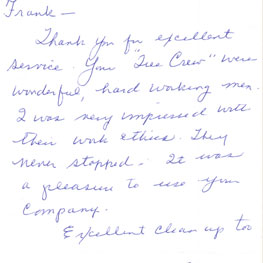 Frank —
Thank you for excellent
service. Your "Tree Crew" were
wonderful, hard working men.
I was very impressed with
their work ethics. They
never stopped. It was
a pleasure to use your
company.
Excellent clean up too